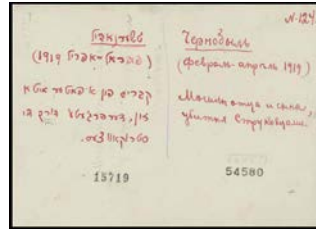 N-124
טשערנאביל
(פעברואר-אפריל 1919)
קברים פון א פאטער און א
זון, דערהרגעטע דורך די
סטרוקאווצעס.
15719
Чернобыль
(февраль-апрель 1919)
Могилы отца и сына,
убитых Струковцами.
54580